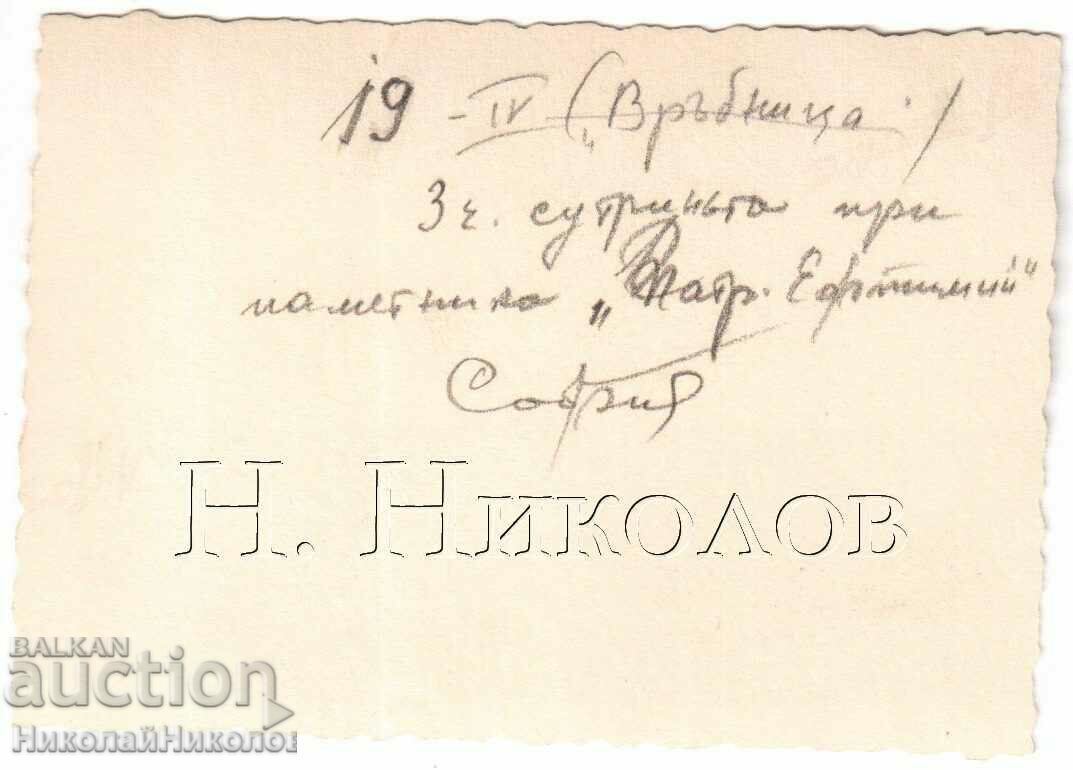 19 - IV ("Връбница")
3 ч. сутриньта при
паметника "Патр. Ефтимий"
София
Н. Николов
BALKAN
auction
НиколайНиколов